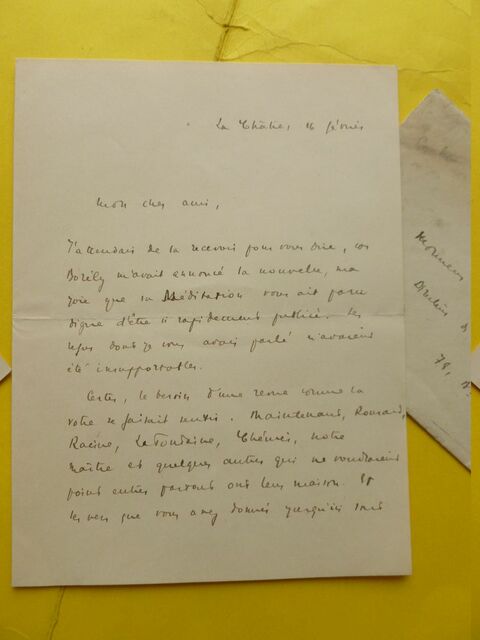 La Châtre, 16 février
Mon cher ami,
J'attendais de la recevoir pour vous dire, car
Borély m'avait annoncé la nouvelle, ma
joie que sa Méditation vous ait paru
digne d'être si rapidement publiée. Les
refus dont je vous avais parlé m'avaient
été insupportables.
Certes, le besoin d'une revue comme la
votre se faisait sentir. Maintenant, Ronsard,
Racine, La Fontaine, Chénier, notre
maître et quelques autres qui ne voudraient
point entrer partout ont leur maison. Et
les vers que vous avez donnés jusqu'ici sont
Monsieur
74,